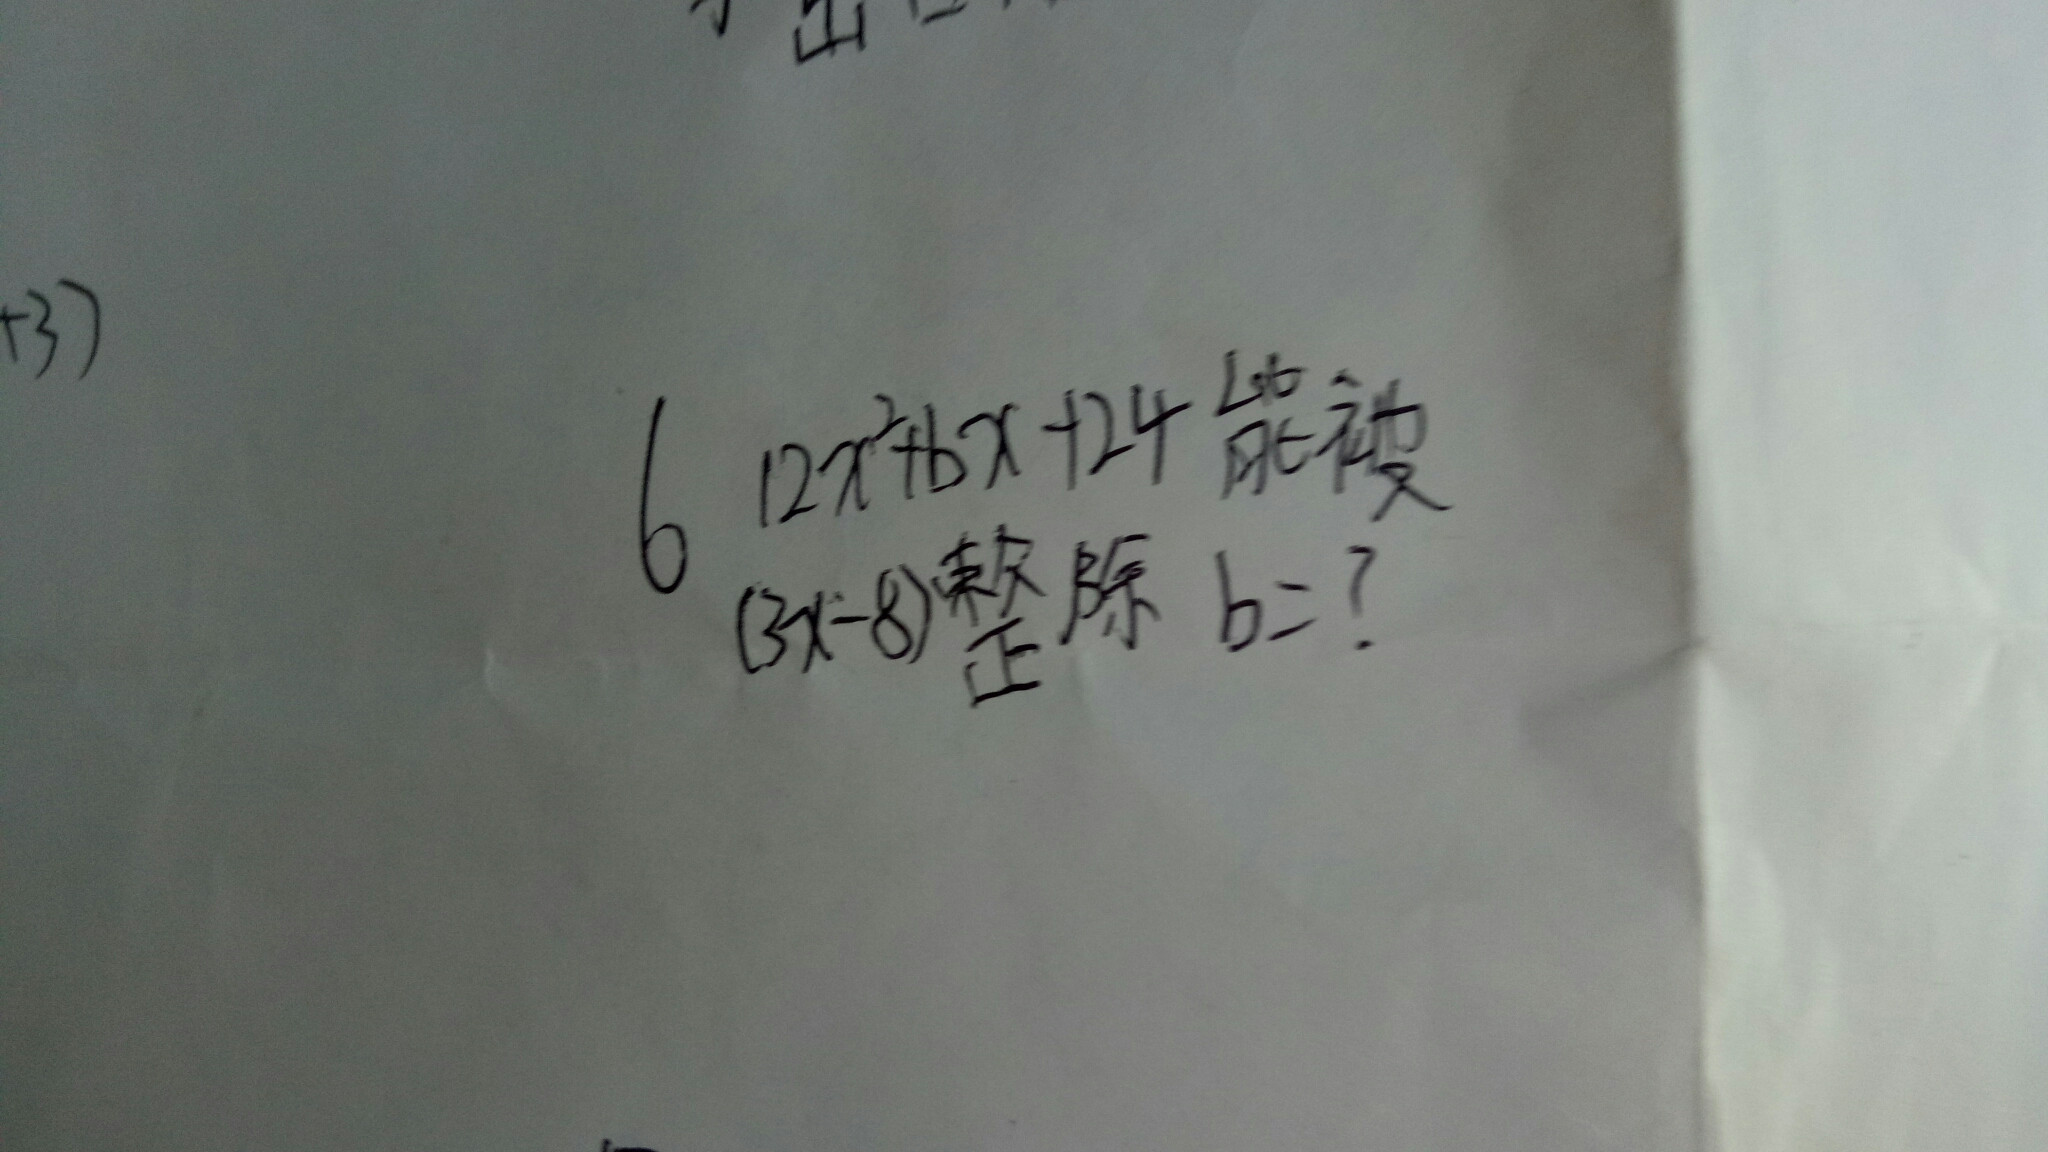 出
+3)
6 12x²+bx+24能被
(3x-8)整除 b=?